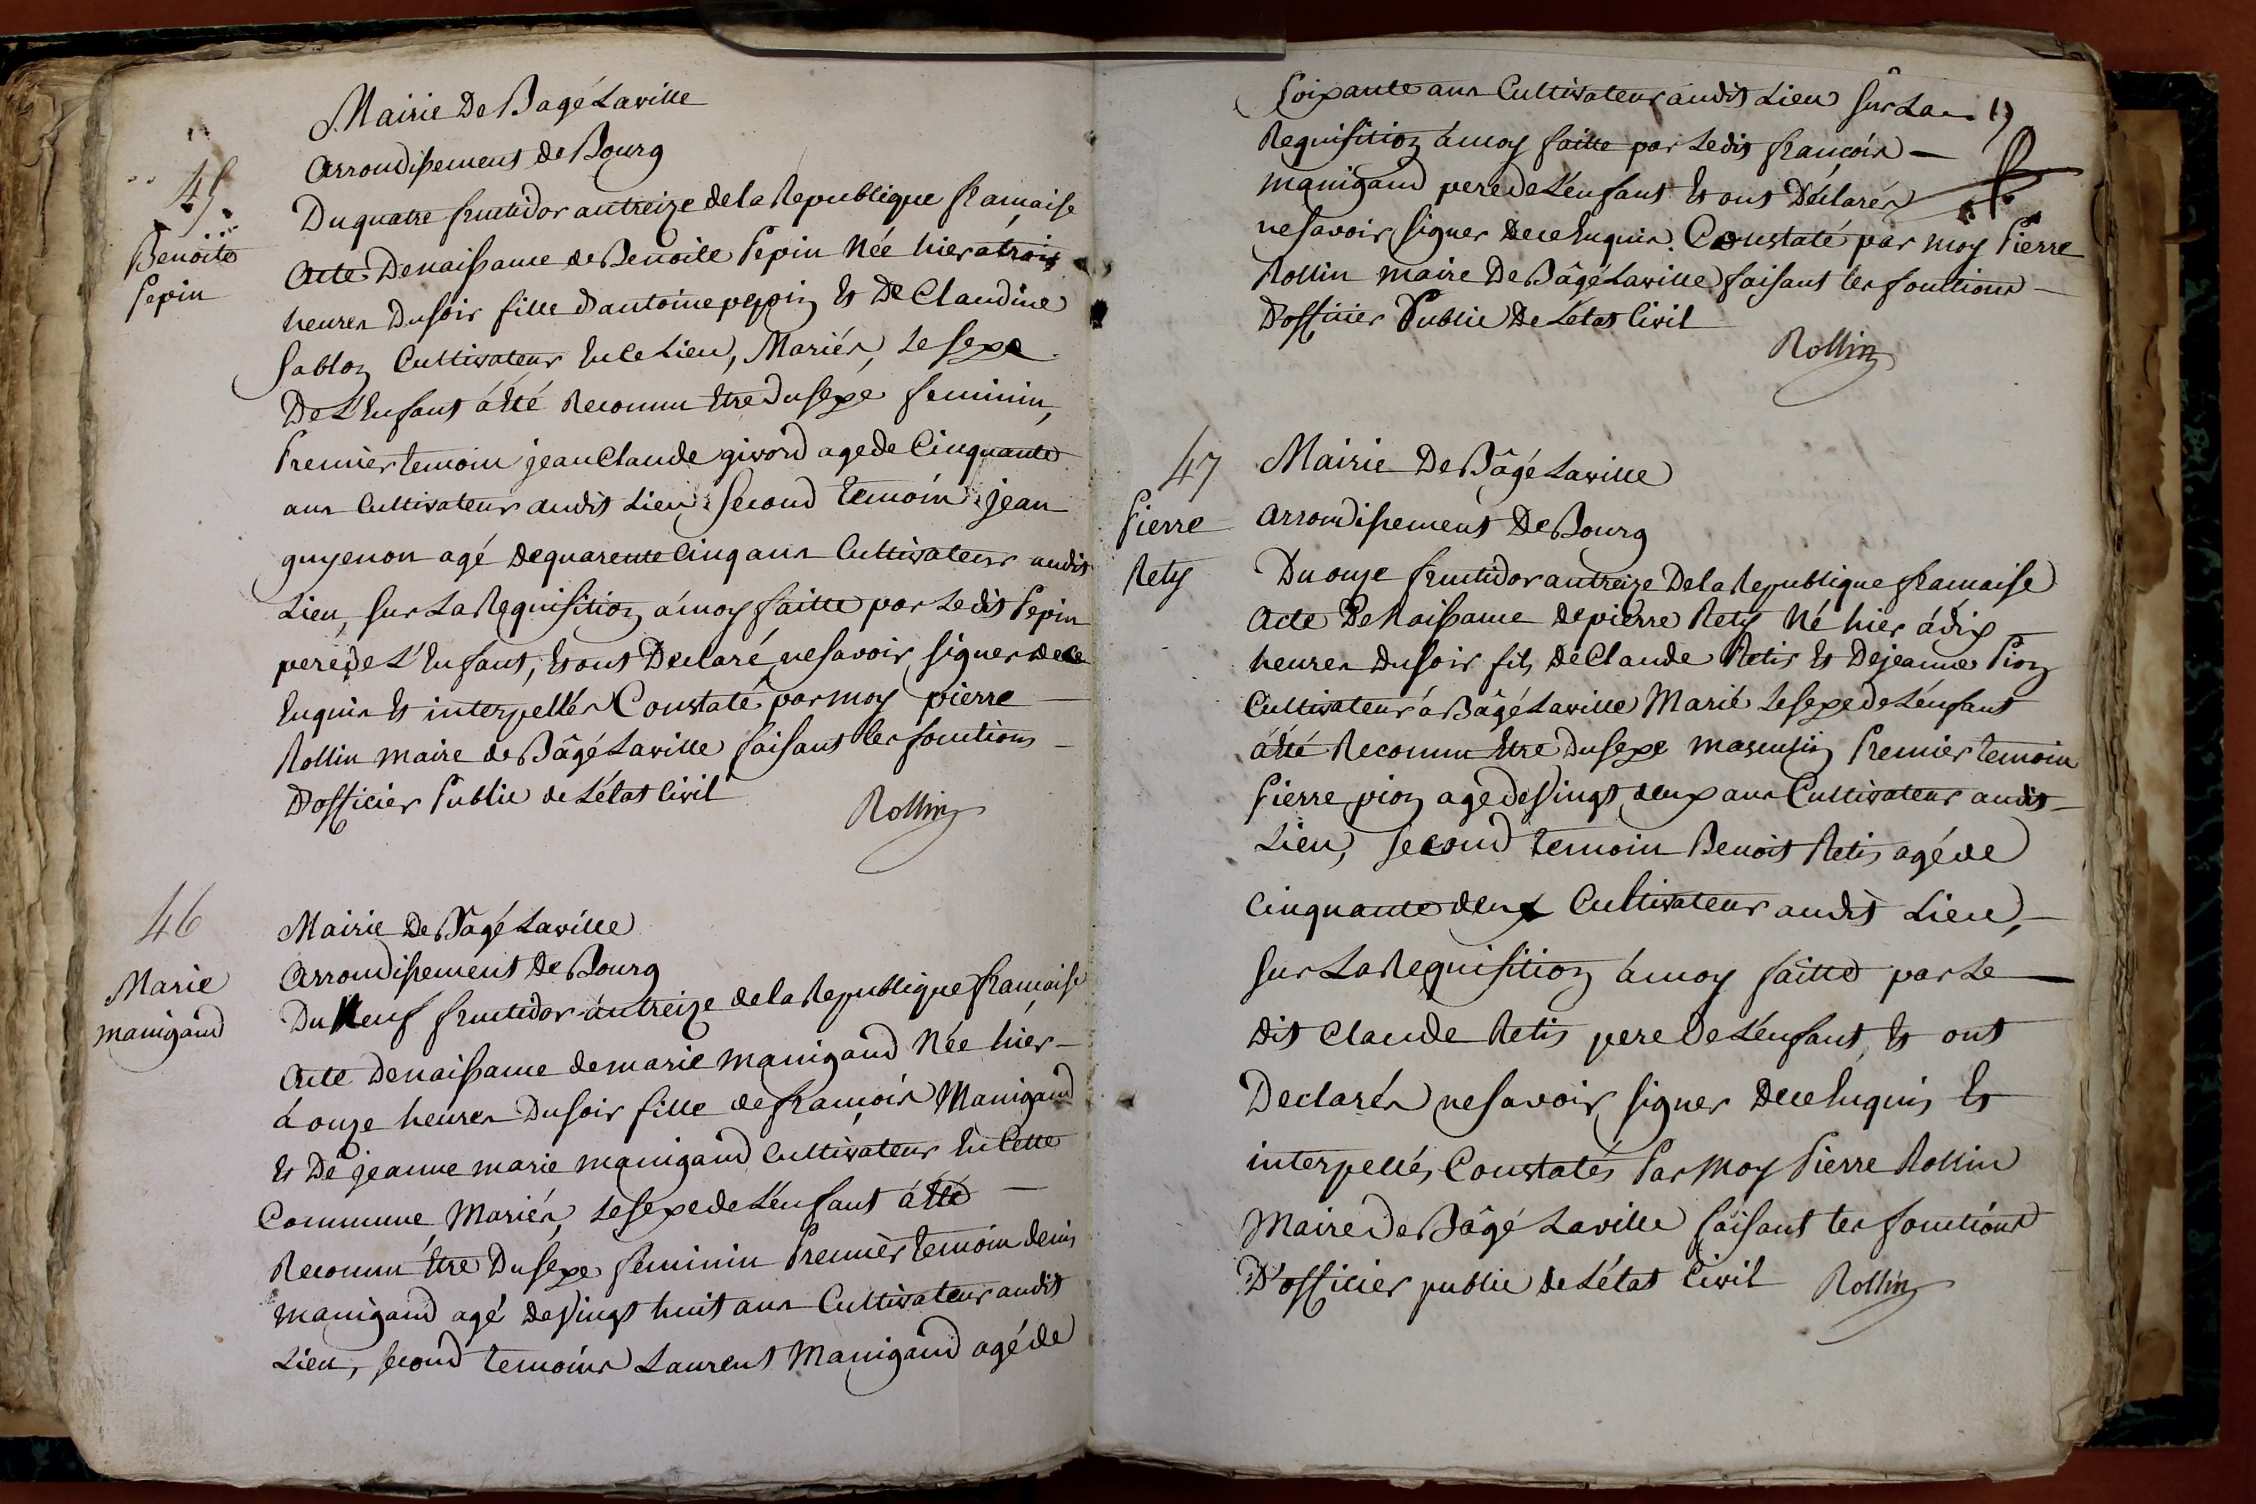 Mairie De Bagé Laville
Arrondissement de Bourg
45
Benoite
Pepin
Du quatre fructidor an treize de la Republique francaise
Acte De naissance de Benoite Pepin Née hier à trois
heures Du soir fille d'antoine pepin Et De Claudine
Sablon Cultivateur En Ce Lieu, Mariés, Le Sexe
De L'Enfant à Eté Reconnu Etre Du Sexe feminin,
Premier temoin jean Claude givord age de Cinquante
ans Cultivateur audit Lieu, Second temoin jean
guyenon agé De quarente Cinq ans Cultivateur audit
Lieu, Sur La Requisition à moy faitte par Le dit Pepin
pere de L'Enfant, Et ont Declaré ne Savoir signer de Ce
Enquis Et interpellés Constaté par moy pierre
Rollin maire de Bâgé Laville faisant les fonctions
D'officier Public de L'état Civil
Rollin
46
Marie
manigand
Mairie De Bagé Laville
Arrondissement De Bourg
Du Neuf fructidor an treize de la Republique francaise
Acte De naissance de marie manigand Née hier
à onze heures Du Soir fille de francois Manigand
Et De jeanne marie manigand Cultivateur En Cette
Commune, Mariés, Le Sexe de L'enfant à Eté
Reconnu Etre Du Sexe feminin Premier temoin denis
manigand agé de Vingt huit ans Cultivateur audit
Lieu, Second temoins Laurent Manigand agé de
Soixante ans Cultivateur audit Lieu Sur La
Requisition à moy faitte par Le dit francois
manigand pere de L'enfant Et ont Déclarés
ne Savoir signer de ce Enquis. Constaté par moy Pierre
Rollin maire De Bâgé Laville faisant les fonctions
D'officier Public De L'état Civil
Rollin
47
Pierre
Rety
Mairie De Bâgé Laville
Arrondissement De Bourg
Du onze fructidor an treize De la Republique francaise
Acte De Naissance de pierre Rety Né hier à dix
heures Du Soir fils De Claude Retis Et De jeanne Pion
Cultivateur à Bâgé Laville Marié Le Sexe de L'enfant
à été Reconnu Etre Du Sexe masculin Premier temoin
Pierre pion agé de Vingt deux ans Cultivateur audit
Lieu, Second temoin Benoit Retis agé de
Cinquante deux Cultivateur audit Lieu,
Sur La Requisition à moy faitte par Le
dit Claude Retis pere De L'enfant, Et ont
Declarés ne Savoir signer De ce Enquis Et
interpellés Constatés Par moy Pierre Rollin
Maire De Bâgé Laville faisant les fonctions
D'officier public de L'état Civil Rollin